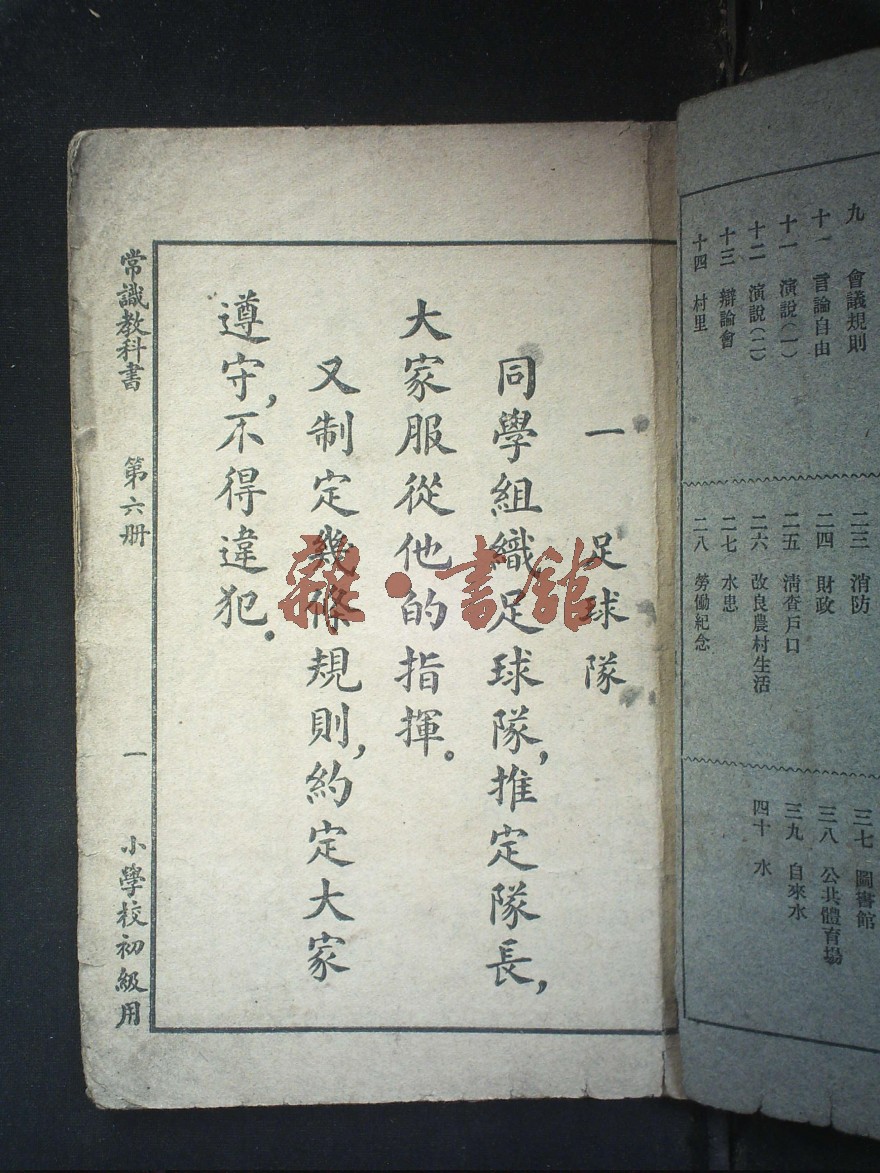 九 會議規則
十一 言論自由
十一 演說(一)
十二 演說(二)
十三 辯論會
十四 村里
二三 消防
二四 財政
二五 淸查戶口
二六 改良農村生活
二七 水患
二八 勞働紀念
三七 圖書館
三八 公共體育場
三九 自來水
四十 水
一 足球隊
同學組織足球隊,推定隊長,
大家服從他的指揮。
又制定幾條規則,約定大家
遵守,不得違犯.
常識教科書 第六册 一 小學校初級用
雜·書館